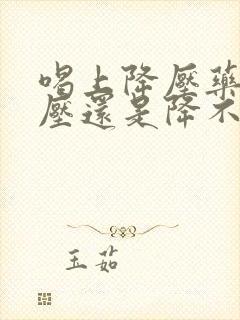 喝上降壓藥
壓還是降不
玉茹